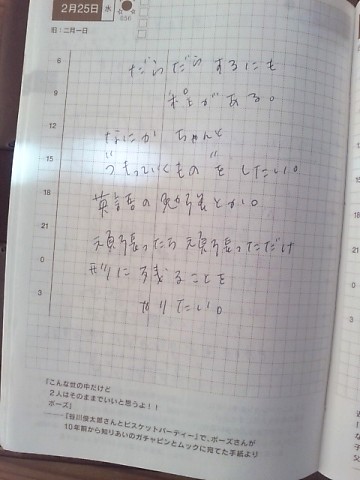 2月25日 水
旧:二月一日
6
だらだらするにも
9
程がある。
12
なにか ちゃんと
15
"つもっていくもの"をしたい。
18
英語の勉強とか。
21
頑張ったら頑張っただけ
0
形に残ることを
3
やりたい。
『こんな世の中だけど
2人はそのままでいいと思うよ!!
ボーズ』
――『谷川俊太郎さんとビスケットパーティー』で、ボーズさんが
10年前から知りあいのガチャピンとムックに宛てた手紙より